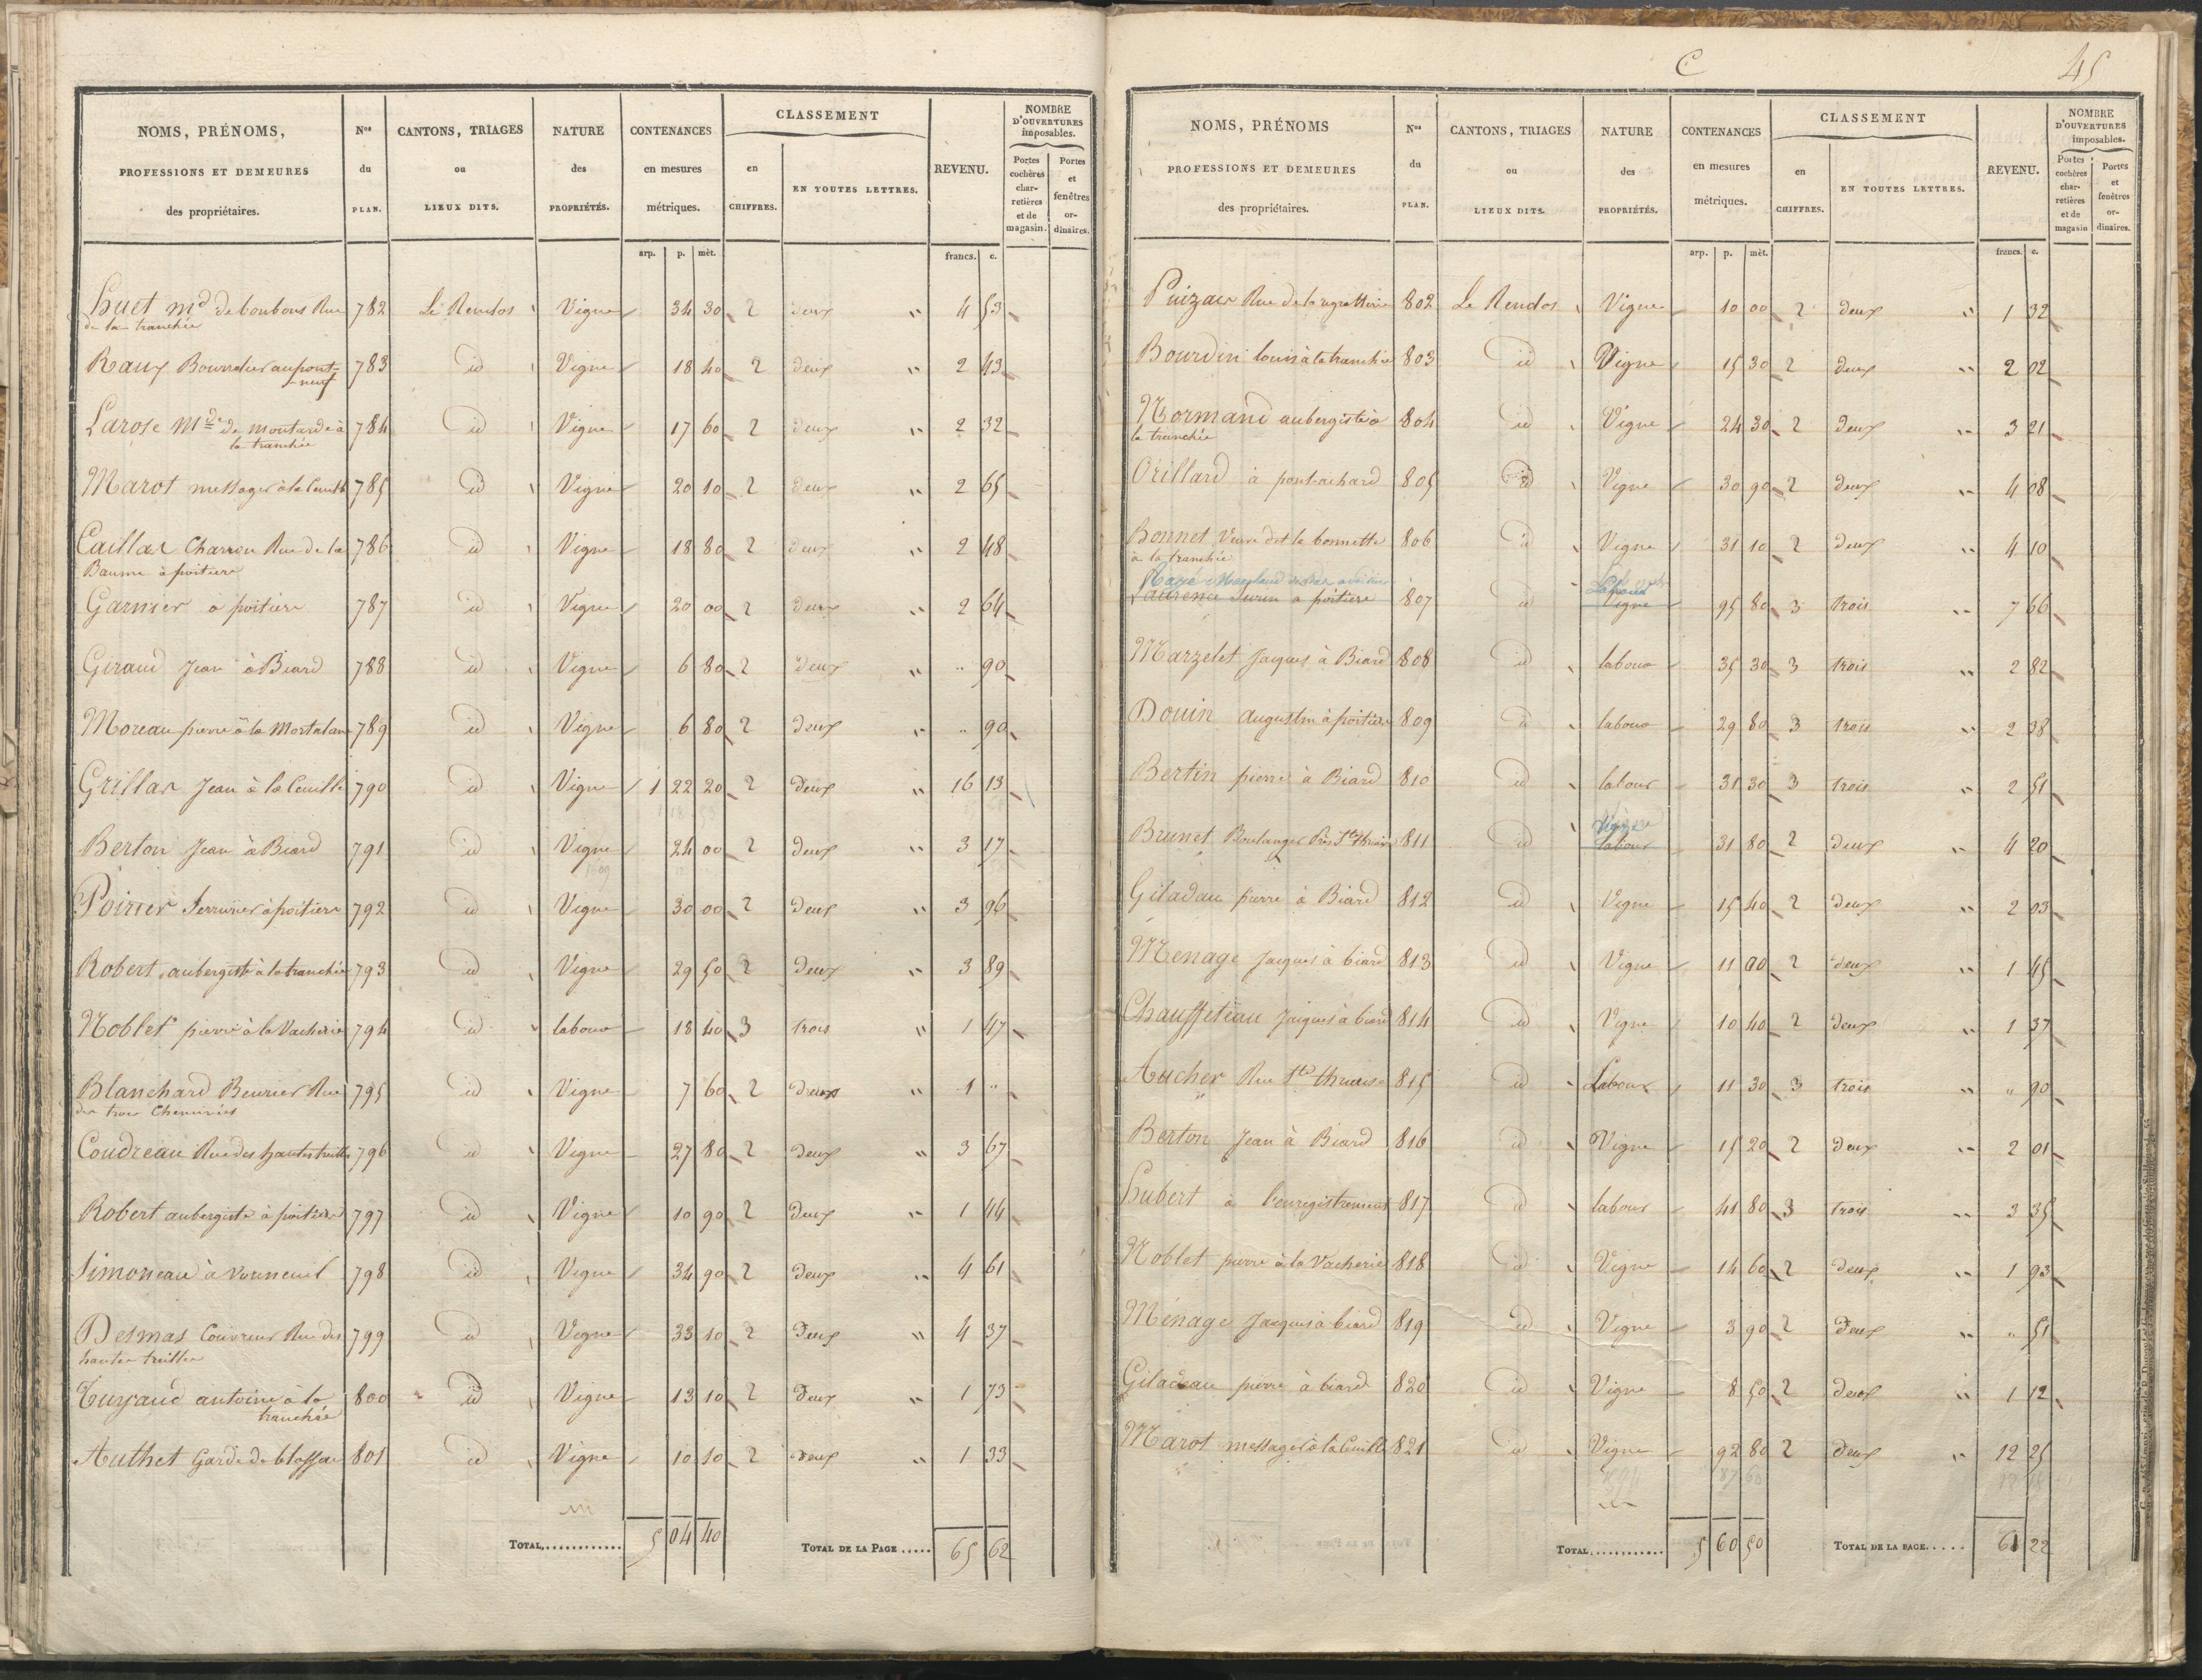 NOMS, PRÉNOMS, PROFESSIONS ET DEMEURES des propriétaires. Nos du PLAN. CANTONS, TRIAGES ou LIEUX DITS. NATURE des PROPRIÉTÉS. CONTENANCES en mesures métriques. CLASSEMENT en CHIFFRES. EN TOUTES LETTRES. REVENU. NOMBRE D'OUVERTURES imposables. Portes cochères charretières et de magasin. Portes et fenêtres ordinaires.
arp. p. mèt. francs. c.
huet md de bonbons Rue 782 Le Rendos Vigne 34 30 2 deux " 4 53
de la tranchée
Raux Bourrelier au pont- 783 id Vigne 18 40 2 deux " 2 43
neuf
Larose Mde de moutarde à 784 id Vigne 17 60 2 deux " 2 32
la tranchée
Marot messager à la 785 id Vigne 20 10 2 deux " 2 65
Caillas Charron Rue de la 786 id Vigne 18 80 2 deux " 2 48
Baume à poitiers
Garnier à poitiers 787 id Vigne 20 00 2 deux " 2 64
Giraud Jean à Biard 788 id Vigne 6 80 2 deux " " 90
Moreau pierre à la 789 id Vigne 6 80 2 deux " " 90
Grillas Jean à la Ceuille 790 id Vigne 1 22 20 2 deux " 16 13
Berton Jean à Biard 791 id Vigne 24 00 2 deux " 3 17
Poirier Serrurier à poitiers 792 id Vigne 30 00 2 deux " 3 96
Robert aubergiste à la tranchée 793 id Vigne 29 50 2 deux " 3 89
Noblet pierre à la Vacherie 794 id labour 18 40 3 trois " 1 47
Blanchard Beurier Rue 795 id Vigne 7 60 2 deux 1 "
des trois Cheminées
Coudreau Rue des hautes treilles 796 id Vigne 27 80 2 deux " 3 67
Robert aubergiste à poitiers 797 id Vigne 10 90 2 deux " 1 44
Simoneau à Vouneuil 798 id Vigne 34 90 2 deux " 4 61
Desmas Couvreur Rue des 799 id Vigne 33 10 2 deux " 4 37
hautes treilles
antoine à la 800 id Vigne 13 10 2 deux " 1 73
tranchée
Authet Garde de blossac 801 id Vigne 10 10 2 deux " 1 33
TOTAL............ 5 04 40 TOTAL DE LA PAGE ..... 65 62
C 45
NOMS, PRÉNOMS PROFESSIONS ET DEMEURES des propriétaires. Nos du PLAN. CANTONS, TRIAGES ou LIEUX DITS. NATURE des PROPRIÉTÉS. CONTENANCES en mesures métriques. CLASSEMENT en CHIFFRES. EN TOUTES LETTRES. REVENU. NOMBRE D'OUVERTURES imposables. Portes cochères charretières et de magasin Portes et fenêtres ordinaires.
arp. p. mèt. francs. c.
Puizais Rue de la regratterie 802 Le Rendos Vigne 10 00 2 deux " 1 32
Bourdin louis à la tranchée 803 id Vigne 15 30 2 deux " 2 02
Normand aubergiste à 804 id Vigne 24 30 2 deux " 3 21
la tranchée
Orillard à pont-achard 805 id Vigne 30 90 2 deux 4 08
Bonnet Veuve dit la bonnette 806 id Vigne 31 10 2 deux " 4 10
à la tranchée
Labour
Laurence à poitiers 807 id Vigne 95 80 3 trois " 7 66
Marzelet Jacques à Biard 808 id labour 35 30 3 trois " 2 82
Douin augustin à poitiers 809 id labour 29 80 3 trois " 2 38
Bertin pierre à Biard 810 id labour 31 30 3 trois " 2 51
Vigne
Brunet Boulanger Près Ste thraise 811 id labour 31 80 2 deux " 4 20
Giladau pierre à Biard 812 id Vigne 15 40 2 deux " 2 03
Menage Jacques à biard 813 id Vigne 11 00 2 deux " 1 45
Chauffeteau Jacques à biard 814 id Vigne 10 40 2 deux " 1 37
Aucher Rue Ste thraise 815 id Labour 11 30 3 trois " " 90
Berton Jean à Biard 816 id Vigne 15 20 2 deux " 2 01
hubert à l'enregistrement 817 id labour 41 80 3 trois " 3 35
Noblet pierre à la Vacherie 818 id Vigne 14 60 2 deux " 1 93
Ménage Jacques à biard 819 id Vigne 3 90 2 deux " " 51
Giladeau pierre à biard 820 id Vigne 8 50 2 deux " 1 12
Marot messager à la Ceuille 821 id Vigne 92 80 2 deux " 12 25
TOTAL............ 5 60 50 TOTAL DE LA PAGE..... 61 22